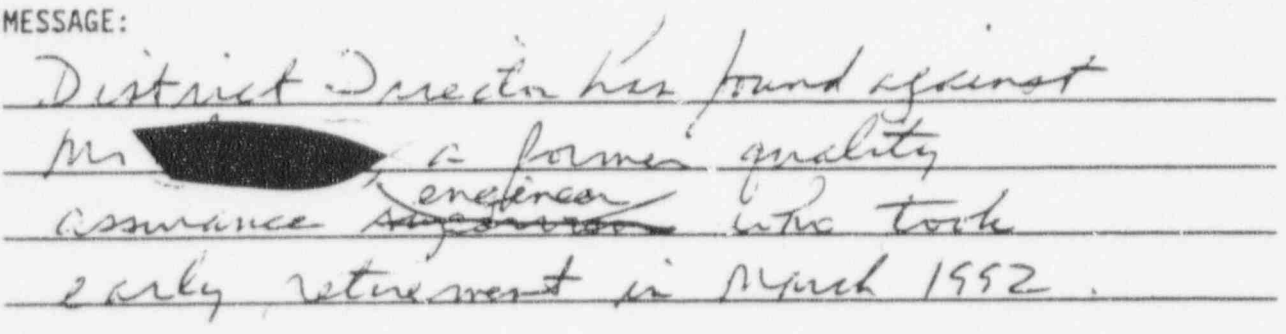 MESSAGE:
District Director has found against
Mr , a former quality
engineer
assurance supervisor who took
early retirement in March 1992.